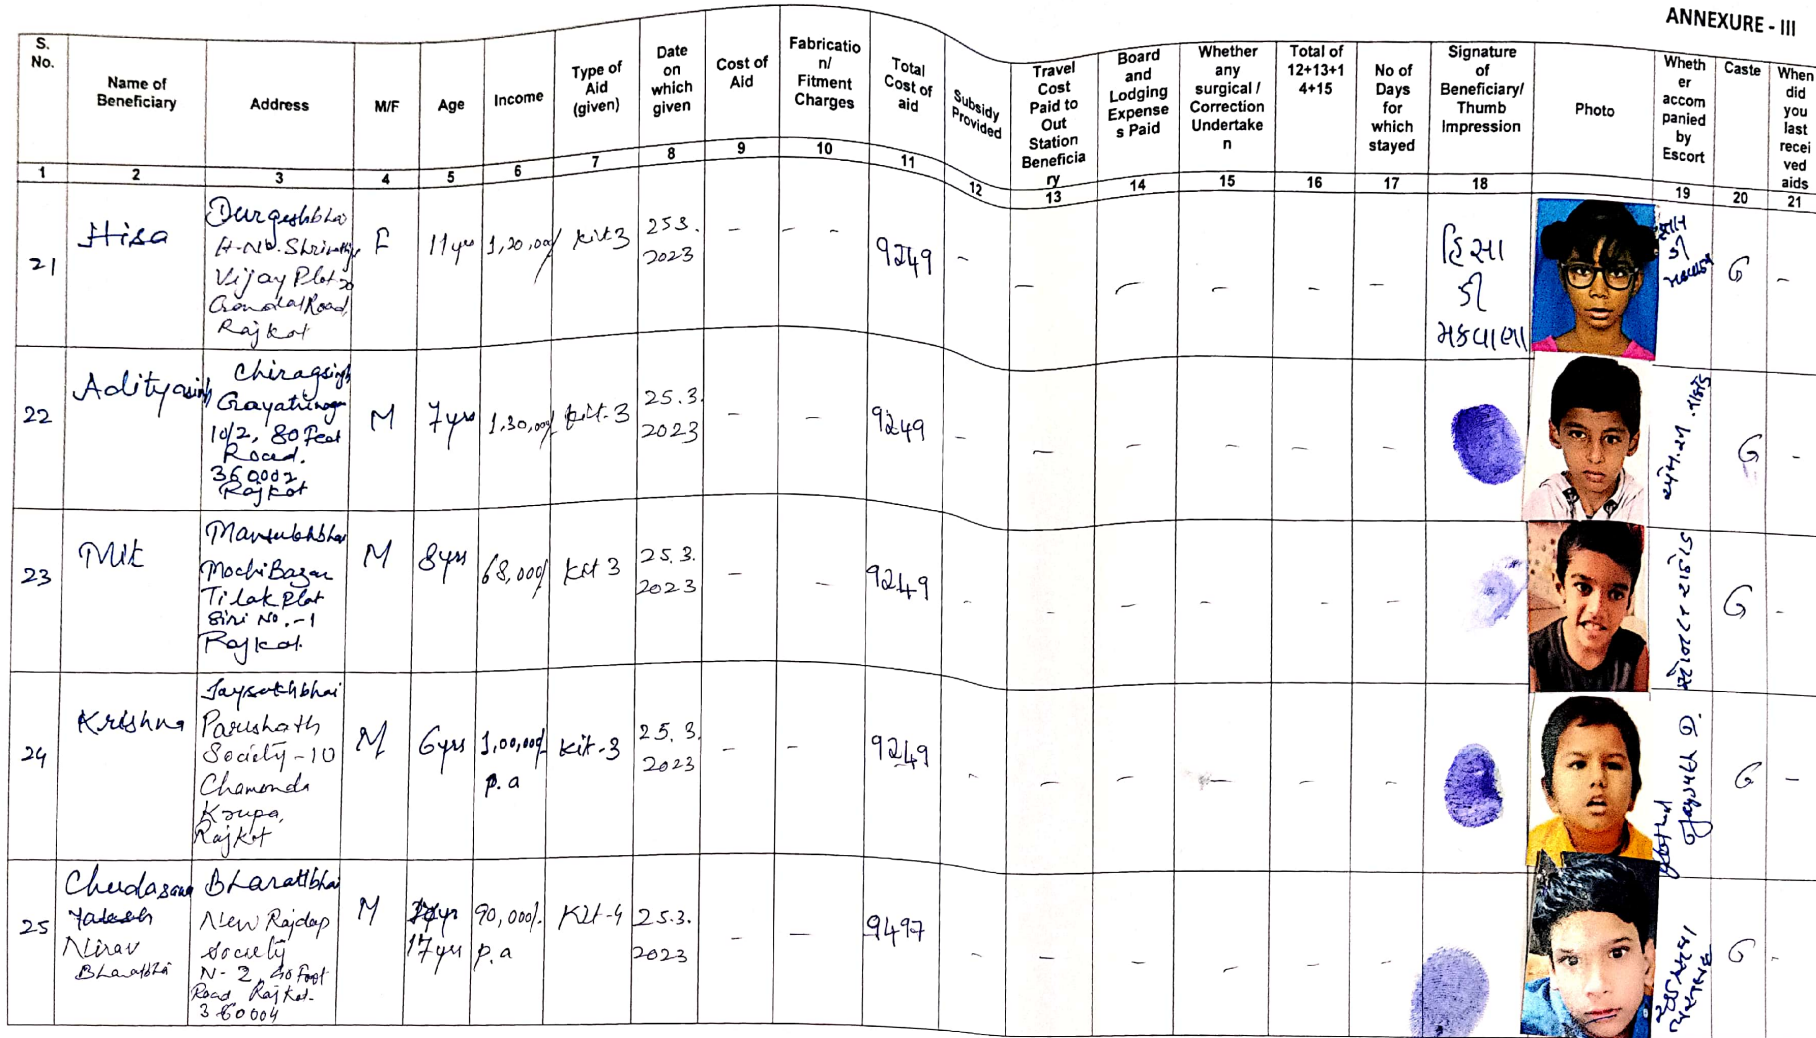 ANNEXURE - III
S. No.
Name of Beneficiary
Address
M/F
Age
Income
Type of Aid (given)
Date on which given
Cost of Aid
Fabricatio n/ Fitment Charges
Total Cost of aid
Subsidy Provided
Travel Cost Paid to Out Station Beneficia ry
Board and Lodging Expense s Paid
Whether any surgical / Correction Undertake n
Total of 12+13+1 4+15
No of Days for which stayed
Signature of Beneficiary/ Thumb Impression
Photo
Wheth er accom panied by Escort
Caste
When did you last recei ved aids
1 2 3 4 5 6 7 8 9 10 11 12 13 14 15 16 17 18 19 20 21
21
Hisa
Durgeshbhai
H-No. Shrinathji
Vijay Plot
Gondal Road,
Rajkot
F
11 yrs
1,20,000/
Kit 3
25 3.
2023
- - -
9249
- - - - - -
હિસા
ડી
મકવાણા
G -
22
Adityasinh
Chiragsinh
Gayatrinagar
10/2, 80 Feet
Road.
360002
Rajkot
M
7 yrs
1,30,000/
Kit-3
25.3.
2023
- -
9249
- - - - - -
G -
23
Mit
Mansukhbhai
Mochi Bazar
Tilak Plot
No.-1
Rajkot.
M
8 yrs
68,000/
Kit 3
25.3.
2023
- -
9249
- - - - - -
G -
24
Krishna
Jaysukhbhai
Society - 10
Chamonda
Krupa,
Rajkot
M
6 yrs
1,00,000/
p.a
Kit-3
25.3.
2023
- -
9249
- - - - - -
G -
25
Chudasama
Nirav
Bharatbhai
Bharatbhai
New Rajdap
Society
N-2, 40 Foot
Road, Rajkot-
360004
M
17 yrs
90,000/.
p.a
Kit-4
25.3.
2023
- -
9497
- - - - - -
G -